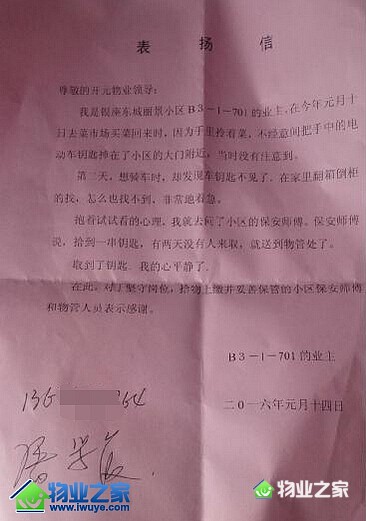 表 扬 信
尊敬的开元物业领导：
我是银座东城丽景小区B3-1-701的业主，在今年元月十
日去菜市场买菜回来时，因为手里拎着菜，不经意间把手中的电
动车钥匙掉在了小区的大门附近，当时没有注意到。
第二天，想骑车时，却发现车钥匙不见了。在家里翻箱倒柜
的找，怎么也找不到，非常地着急。
抱着试试看的心理，我就去问了小区的保安师傅。保安师傅
说，拾到一串钥匙，有两天没有人来取，就送到物管处了。
取到了钥匙，我的心平静了。
在此，对于坚守岗位，拾物上缴并妥善保管的小区保安师傅
和物管人员表示感谢。
B3-1-701的业主
136 64
二〇一六年元月十四日
物业之家
www.iwuye.com
物业之家